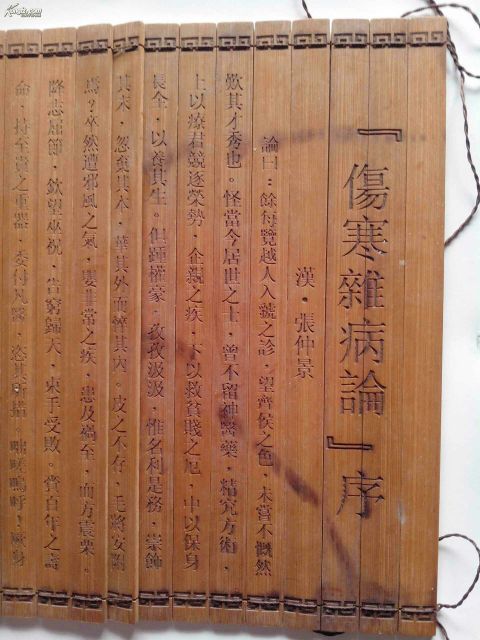 『傷寒雜病論』序
漢·張仲景
論曰：餘每覽越人入虢之診，望齊侯之色，未嘗不慨然
歎其才秀也。怪當今居世之士，曾不留神醫藥，精究方術，
上以療君競逐榮勢，企親之疾，下以救貧賤之厄，中以保身
長全，以養其生。但踵權豪，孜孜汲汲，惟名利是務，崇飾
其末，忽棄其本，華其外而悴其內。皮之不存，毛將安附
焉？卒然遭邪風之氣，嬰非常之疾，患及禍至，而方震栗。
降志屈節，欽望巫祝，告窮歸天，束手受敗。賫百年之壽
命，持至貴之重器，委付凡醫，恣其所措。咄嗟嗚呼，厥身